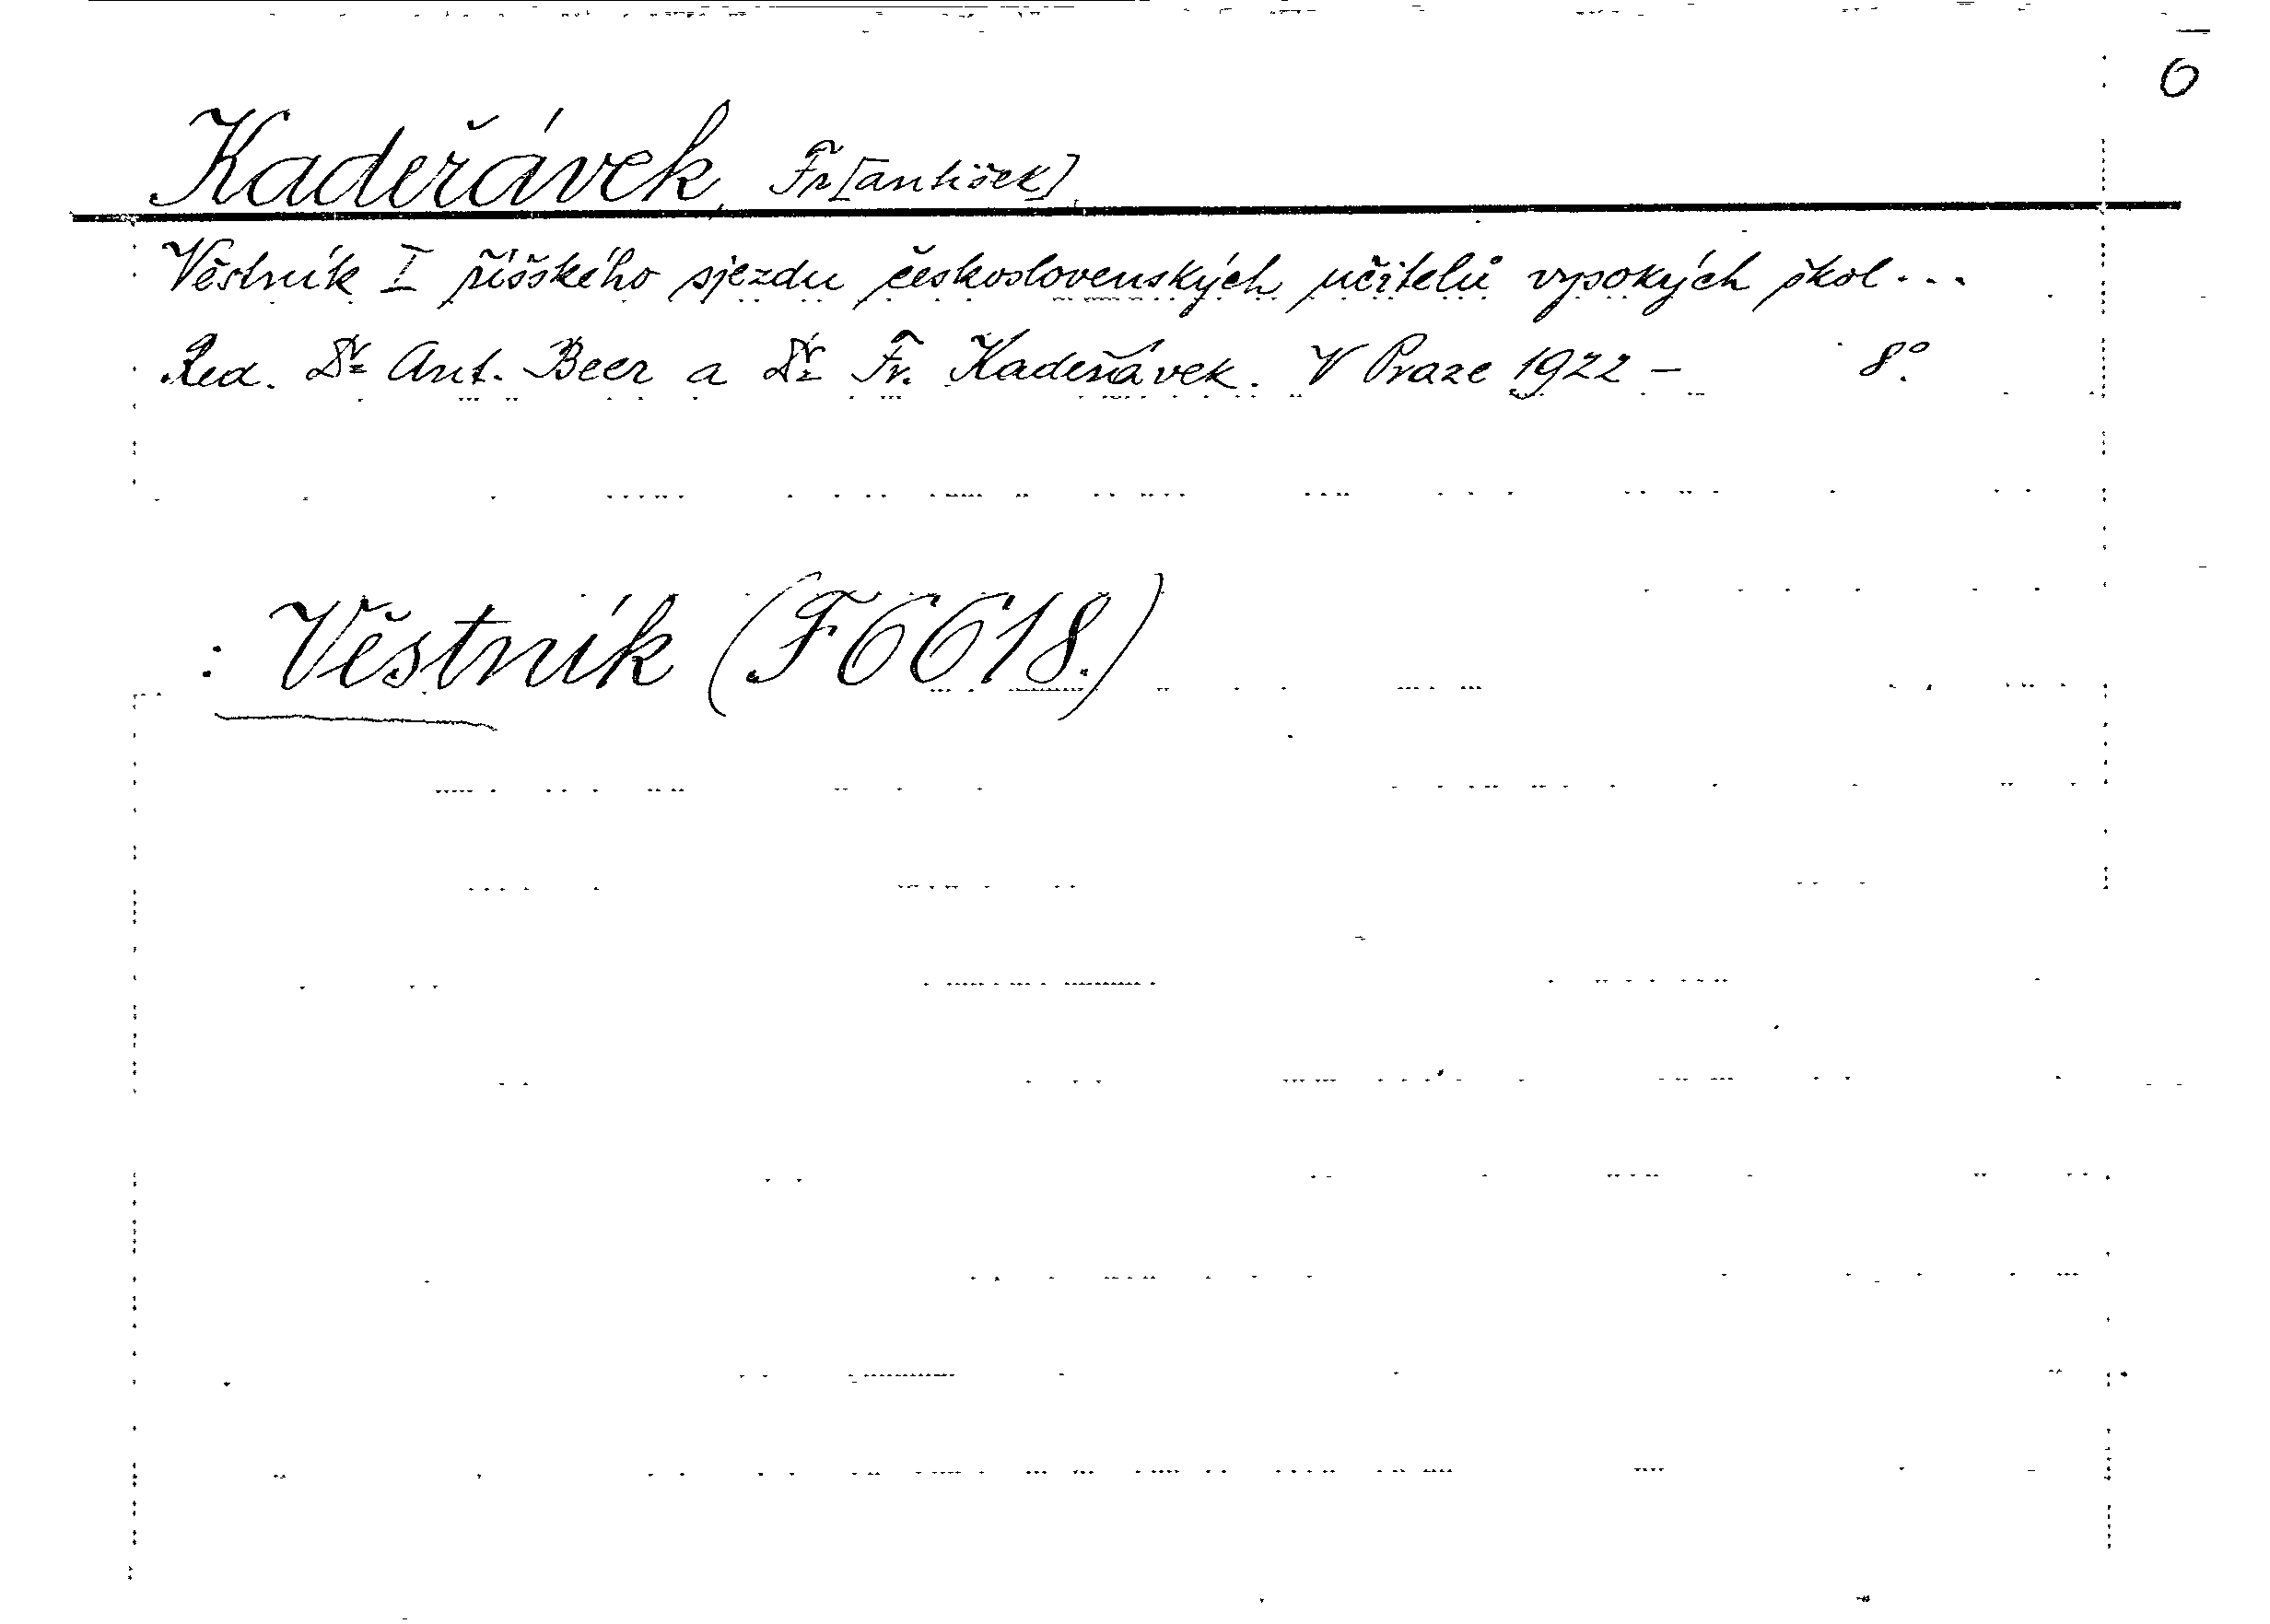 6
Kadeřávek, Fr[antišek],
Věstník I říšského sjezdu československých učitelů vysokých škol...
Red. Dr Ant. Beer a Dr Fr. Kadeřávek. V Praze 1922 - 8°.
: Věstník (F6618.)